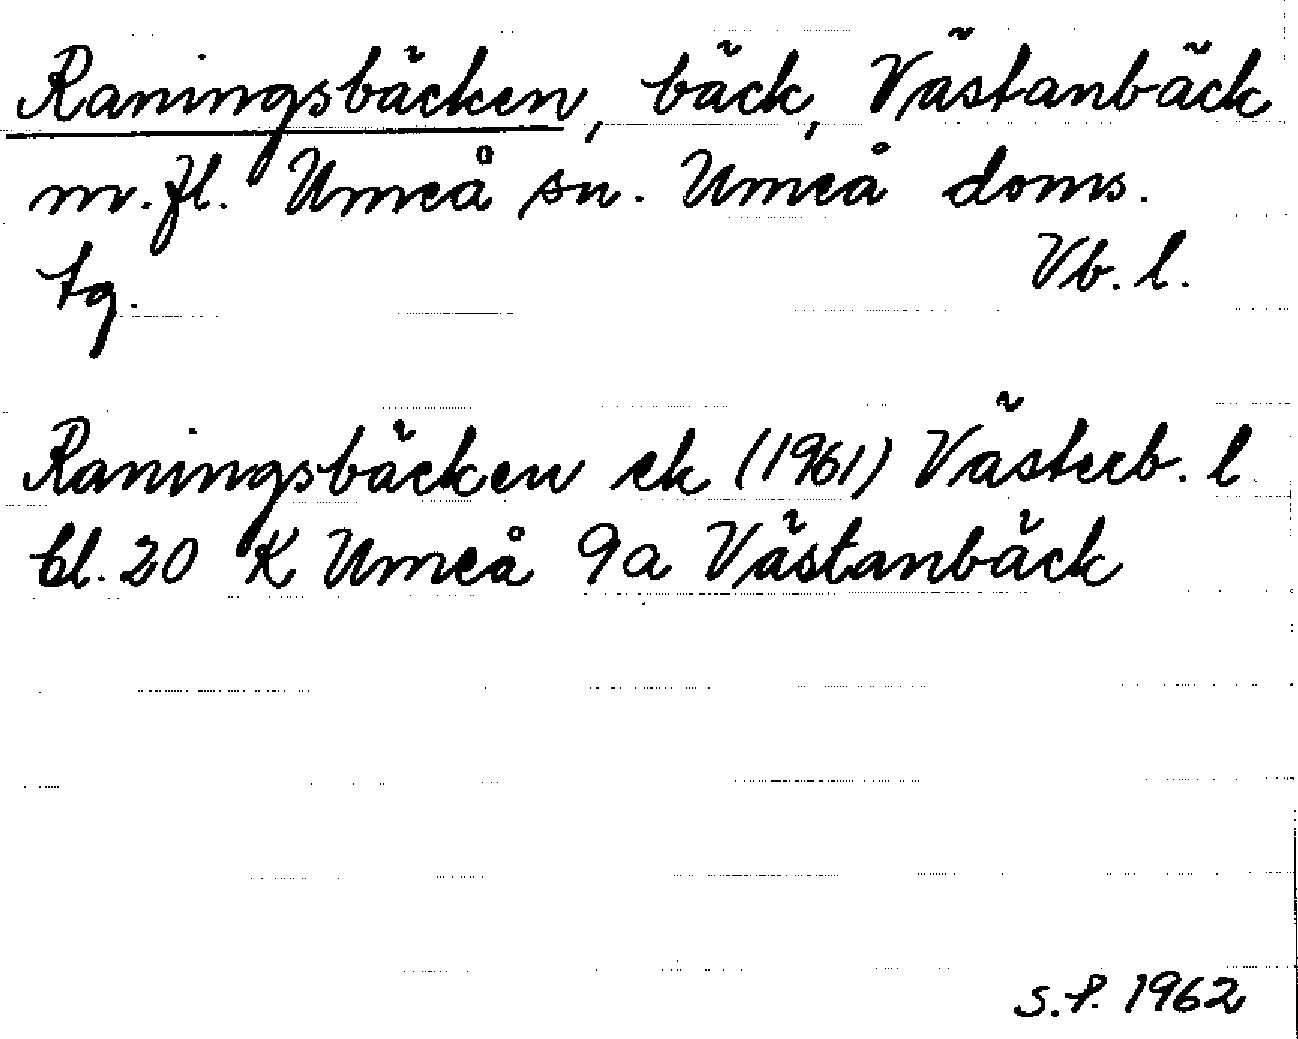 Raningsbäcken, bäck, Västanbäck
m.fl. Umeå sn. Umeå doms.
tg. Vb. l.
Raningsbäcken ek (1961) Västerb. l
bl. 20 K Umeå 9a Västanbäck
S.P. 1962